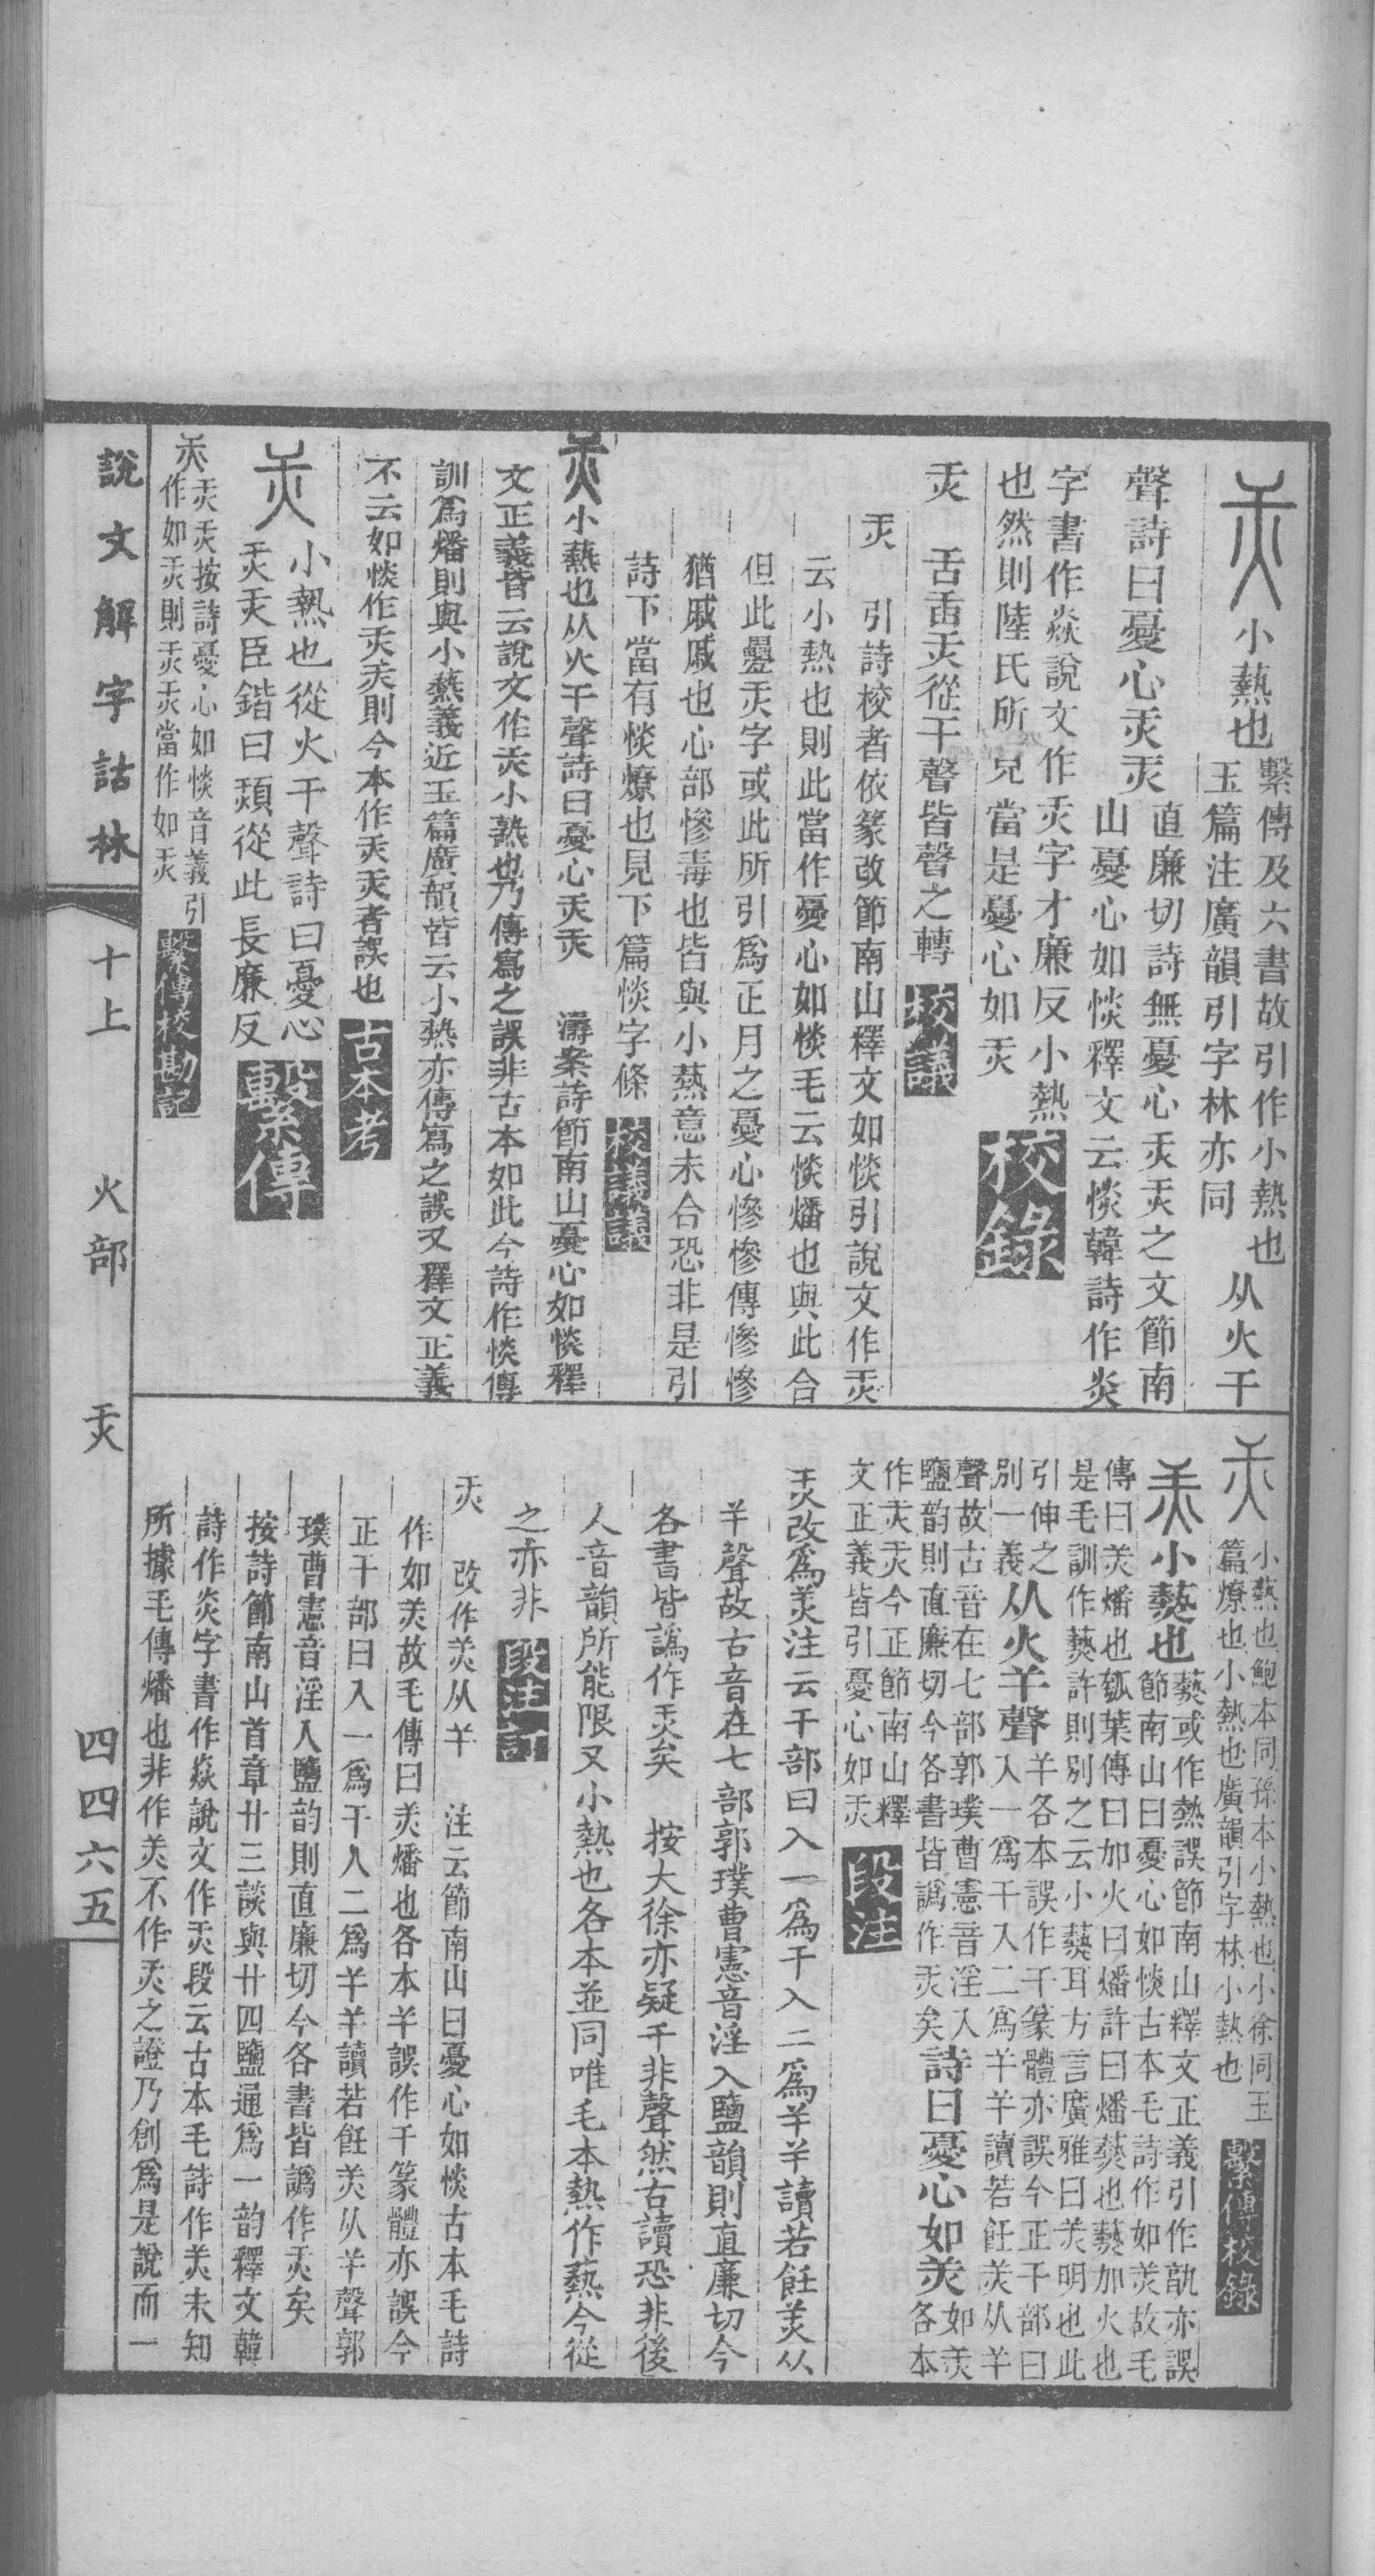 小熱也
繫傳及六書故引作小熱也
玉篇注廣韻引字林亦同
从火干
聲詩曰憂心灻灻
直廉切詩無憂心灻灻之文節南
山憂心如惔釋文云惔韓詩作炎
字書作焱說文作灻字才廉反小熱
也然則陸氏所見當是憂心如灻
校錄
灻 舌臿灻從干聲皆聲之轉
校議
灻 引詩校者依篆改節南山釋文如惔引說文作灻
云小熱也則此當作憂心如惔毛云惔燔也與此合
但此疊灻字或此所引爲正月之憂心慘慘傳慘慘
猶戚戚也心部慘毒也皆與小熱意未合恐非是引
詩下當有惔燎也見下篇惔字條
校議議
小熱也从火干聲詩曰憂心灻灻 濤案詩節南山憂心如惔釋
文正義皆云說文作灻小熟也乃傳寫之誤非古本如此今詩作惔傳
訓爲燔則與小熱義近玉篇廣韻皆云小熱亦傳寫之誤又釋文正義
不云如惔作灻灻則今本作灻灻者誤也
古本考
小熱也從火干聲詩曰憂心
灻灻臣鍇曰頪從此長廉反
繫傳
灻
灻灻按詩憂心如惔音義引
作如灻則灻灻當作如灻
繫傳校勘記
說文解字詁林
十上
火部
灻
四四六五
小熱也鮑本同孫本小熱也小徐同玉
篇燎也小熱也廣韻引字林小熱也
繫傳校錄
小爇也
爇或作熱誤節南山釋文正義引作㷉亦誤
節南山曰憂心如惔古本毛詩作如灻故毛
傳曰灻燔也瓠葉傳曰加火曰燔許曰燔爇也爇加火也
是毛訓作爇許則別之云小爇耳方言廣雅曰灻明也此
引伸之
別一義
从火𢆉聲
𢆉各本誤作干篆體亦誤今正干部曰
入一爲干入二爲𢆉𢆉讀若飪灻从𢆉
聲故古音在七部郭璞曹憲音淫入
鹽韵則直廉切今各書皆譌作灻矣
詩曰憂心如灻
如灻
各本
作灻灻今正節南山釋
文正義皆引憂心如灻
段注
灻改爲灻注云干部曰入一爲干入二爲𢆉𢆉讀若飪灻从
𢆉聲故古音在七部郭璞曹憲音淫入鹽韻則直廉切今
各書皆譌作灻矣 按大徐亦疑干非聲然古讀恐非後
人音韻所能限又小熱也各本並同唯毛本熱作爇今從
之亦非
段注訂
灻 改作灻从𢆉 注云節南山曰憂心如惔古本毛詩
作如灻故毛傳曰灻燔也各本𢆉誤作干篆體亦誤今
正干部曰入一爲干入二爲𢆉𢆉讀若飪灻从𢆉聲郭
璞曹憲音淫入鹽韵則直廉切今各書皆譌作灻矣
按詩節南山首章廿三談與廿四鹽通爲一韵釋文韓
詩作炎字書作焱說文作灻段云古本毛詩作灻未知
所據毛傳燔也非作灻不作灻之證乃創爲是說而一